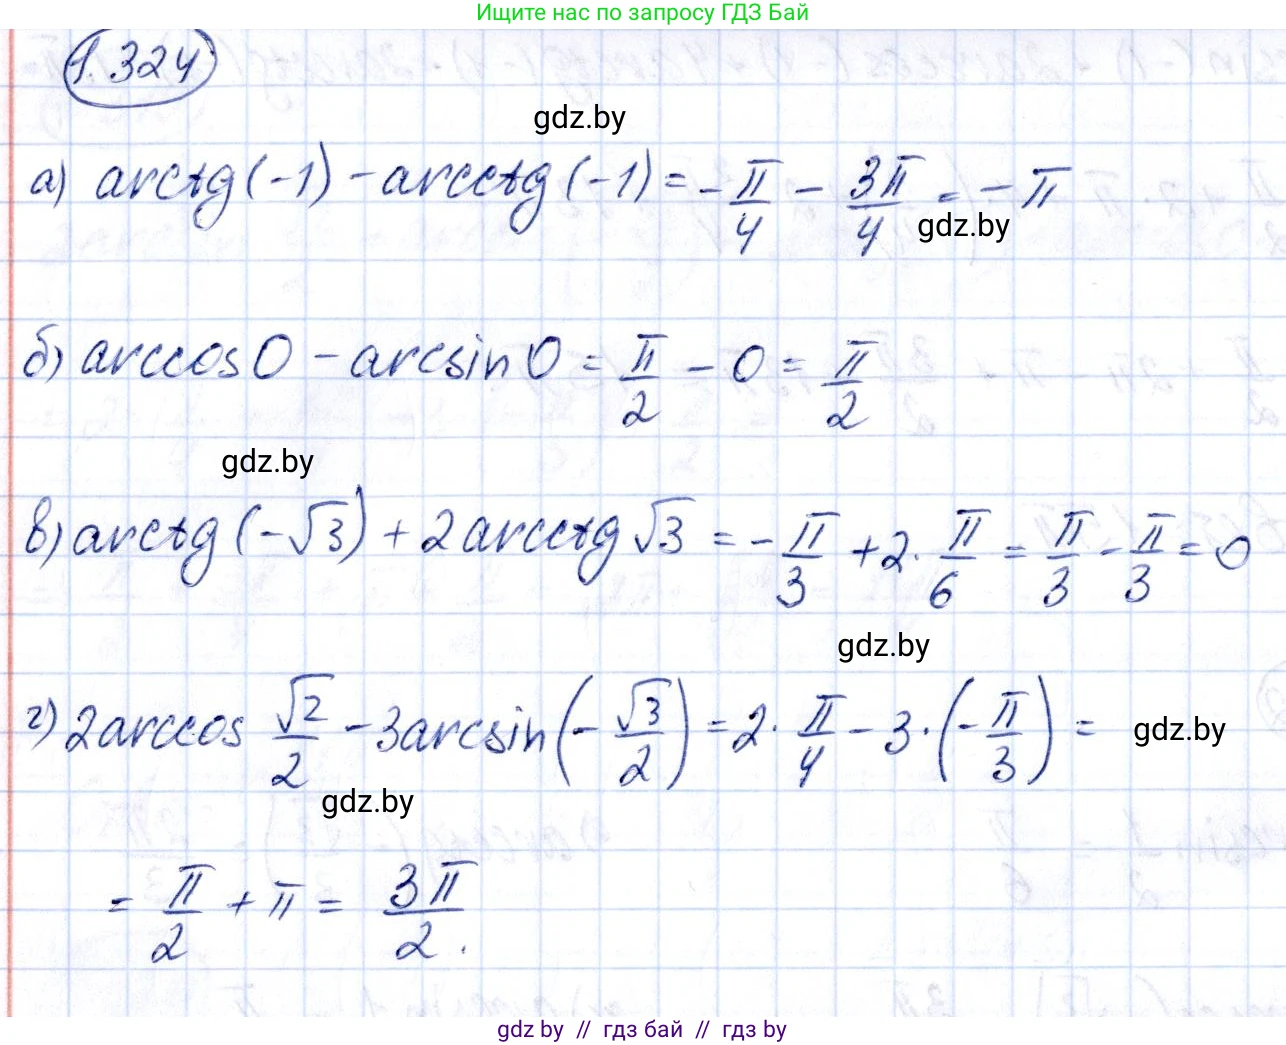 Ищите нас по запросу ГДЗ Бай
1.324
gdz.by
а) arctg(-1) - arcctg(-1) = -π/4 - 3π/4 = -π
gdz.by
б) arccos0 - arcsin0 = π/2 - 0 = π/2
gdz.by
в) arctg(-√3) + 2arcctg√3 = -π/3 + 2·π/6 = π/3 - π/3 = 0
gdz.by
г) 2arccos √2/2 - 3arcsin(-√3/2) = 2·π/4 - 3·(-π/3) =
gdz.by
gdz.by
= π/2 + π = 3π/2.
gdz by // гдз бай // гдз by